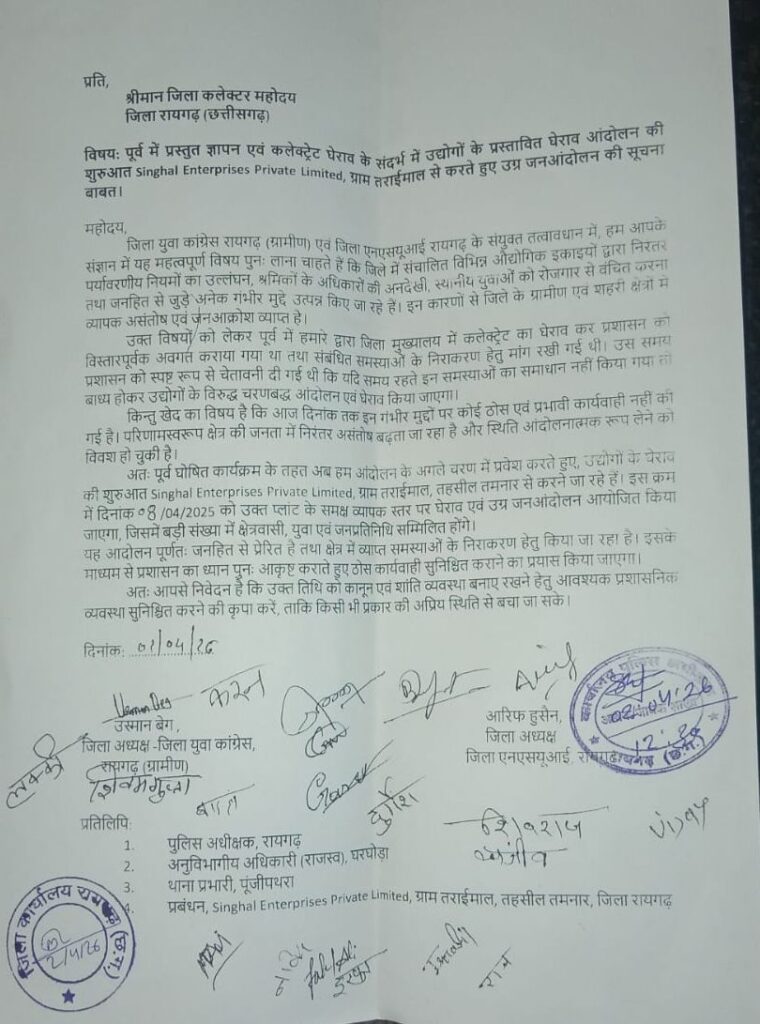 प्रति,
श्रीमान जिला कलेक्टर महोदय
जिला रायगढ़ (छत्तीसगढ़)
विषय: पूर्व में प्रस्तुत ज्ञापन एवं कलेक्ट्रेट घेराव के संदर्भ में उद्योगों के प्रस्तावित घेराव आंदोलन की
शुरुआत Singhal Enterprises Private Limited, ग्राम तराईमाल से करते हुए उग्र जनआंदोलन की सूचना
बाबत।
महोदय,
जिला युवा कांग्रेस रायगढ़ (ग्रामीण) एवं जिला एनएसयूआई रायगढ़ के संयुक्त तत्वावधान में, हम आपके
संज्ञान में यह महत्वपूर्ण विषय पुनः लाना चाहते हैं कि जिले में संचालित विभिन्न औद्योगिक इकाइयों द्वारा निरंतर
पर्यावरणीय नियमों का उल्लंघन, श्रमिकों के अधिकारों की अनदेखी, स्थानीय युवाओं को रोजगार से वंचित करना
तथा जनहित से जुड़े अनेक गंभीर मुद्दे उत्पन्न किए जा रहे हैं। इन कारणों से जिले के ग्रामीण एवं शहरी क्षेत्रों में
व्यापक असंतोष एवं जनआक्रोश व्याप्त है।
उक्त विषयों को लेकर पूर्व में हमारे द्वारा जिला मुख्यालय में कलेक्ट्रेट का घेराव कर प्रशासन को
विस्तारपूर्वक अवगत कराया गया था तथा संबंधित समस्याओं के निराकरण हेतु मांग रखी गई थी। उस समय
प्रशासन को स्पष्ट रूप से चेतावनी दी गई थी कि यदि समय रहते इन समस्याओं का समाधान नहीं किया गया तो
बाध्य होकर उद्योगों के विरुद्ध चरणबद्ध आंदोलन एवं घेराव किया जाएगा।
किन्तु खेद का विषय है कि आज दिनांक तक इन गंभीर मुद्दों पर कोई ठोस एवं प्रभावी कार्यवाही नहीं की
गई है। परिणामस्वरूप क्षेत्र की जनता में निरंतर असंतोष बढ़ता जा रहा है और स्थिति आंदोलनात्मक रूप लेने को
विवश हो चुकी है।
अतः पूर्व घोषित कार्यक्रम के तहत अब हम आंदोलन के अगले चरण में प्रवेश करते हुए, उद्योगों के घेराव
की शुरुआत Singhal Enterprises Private Limited, ग्राम तराईमाल, तहसील तमनार से करने जा रहे हैं। इस क्रम
में दिनांक 08/04/2025 को उक्त प्लांट के समक्ष व्यापक स्तर पर घेराव एवं उग्र जनआंदोलन आयोजित किया
जाएगा, जिसमें बड़ी संख्या में क्षेत्रवासी, युवा एवं जनप्रतिनिधि सम्मिलित होंगे।
यह आदोलन पूर्णतः जनहित से प्रेरित है तथा क्षेत्र में व्याप्त समस्याओं के निराकरण हेतु किया जा रहा है। इसके
माध्यम से प्रशासन का ध्यान पुनः आकृष्ट कराते हुए ठोस कार्यवाही सुनिश्चित कराने का प्रयास किया जाएगा।
अतः आपसे निवेदन है कि उक्त तिथि को कानून एवं शांति व्यवस्था बनाए रखने हेतु आवश्यक प्रशासनिक
व्यवस्था सुनिश्चित करने की कृपा करें, ताकि किसी भी प्रकार की अप्रिय स्थिति से बचा जा सके।
दिनांक: 02/04/26
करन
उस्मान बेग,
जिला अध्यक्ष -जिला युवा कांग्रेस,
रायगढ़ (ग्रामीण)
आरिफ हुसैन,
जिला अध्यक्ष
जिला एनएसयूआई, रायगढ़
02/04/26
लक्की
शिवमगुप्ता
दुर्गेश
शिवराज
संजीव
Vijay
प्रतिलिपि:
1. पुलिस अधीक्षक, रायगढ़
2. अनुविभागीय अधिकारी (राजस्व), घरघोड़ा
3. थाना प्रभारी, पूंजीपथरा
4. प्रबंधन, Singhal Enterprises Private Limited, ग्राम तराईमाल, तहसील तमनार, जिला रायगढ़
जिला कार्यालय रायगढ़ (छ.ग.)
2/4/26
राम